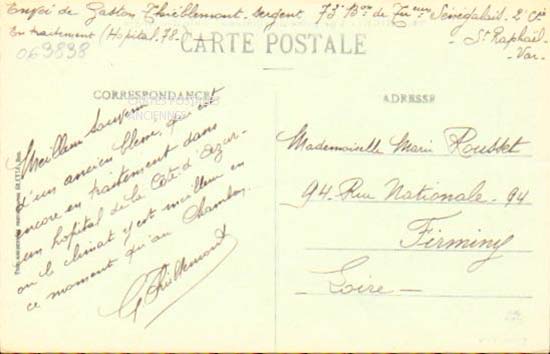 Envoi de Gaston Thiellemont - sergent 73e Bon de Tireurs Sénégalais - 2e Cie
En traitement (Hôpital 78 - St Raphaël -
Var -
069898
CARTE POSTALE
CORRESPONDANCE
CARTES POSTALES
ANCIENNES
ADRESSE
Meilleur Souvenir
d'un ancien blessé, qui est
encore en traitement dans
un hôpital de la Côte d'Azur -
où le climat y est meilleur en
ce moment qu'au Chambon.
G Thiellemont
Mademoiselle Marie Rousset
94 - Rue Nationale - 94
Firminy
Loire -